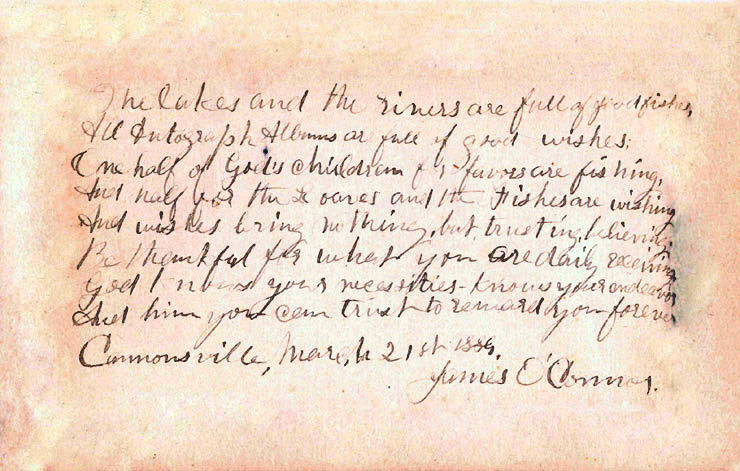 The lakes and the rivers are full of good fishes,
All Autograph Albums are full of good wishes;
One half of God's children for favors are fishing,
And half for the Loaves and the Fishes are wishing
And wishes bring nothing, but trusting, believing,
Be thankful for what you are daily receiving
God knows your necessities - knows your endeavor
And him you can trust to reward you forever
Cannonsville, March 21st 1889.
James O'Connor.